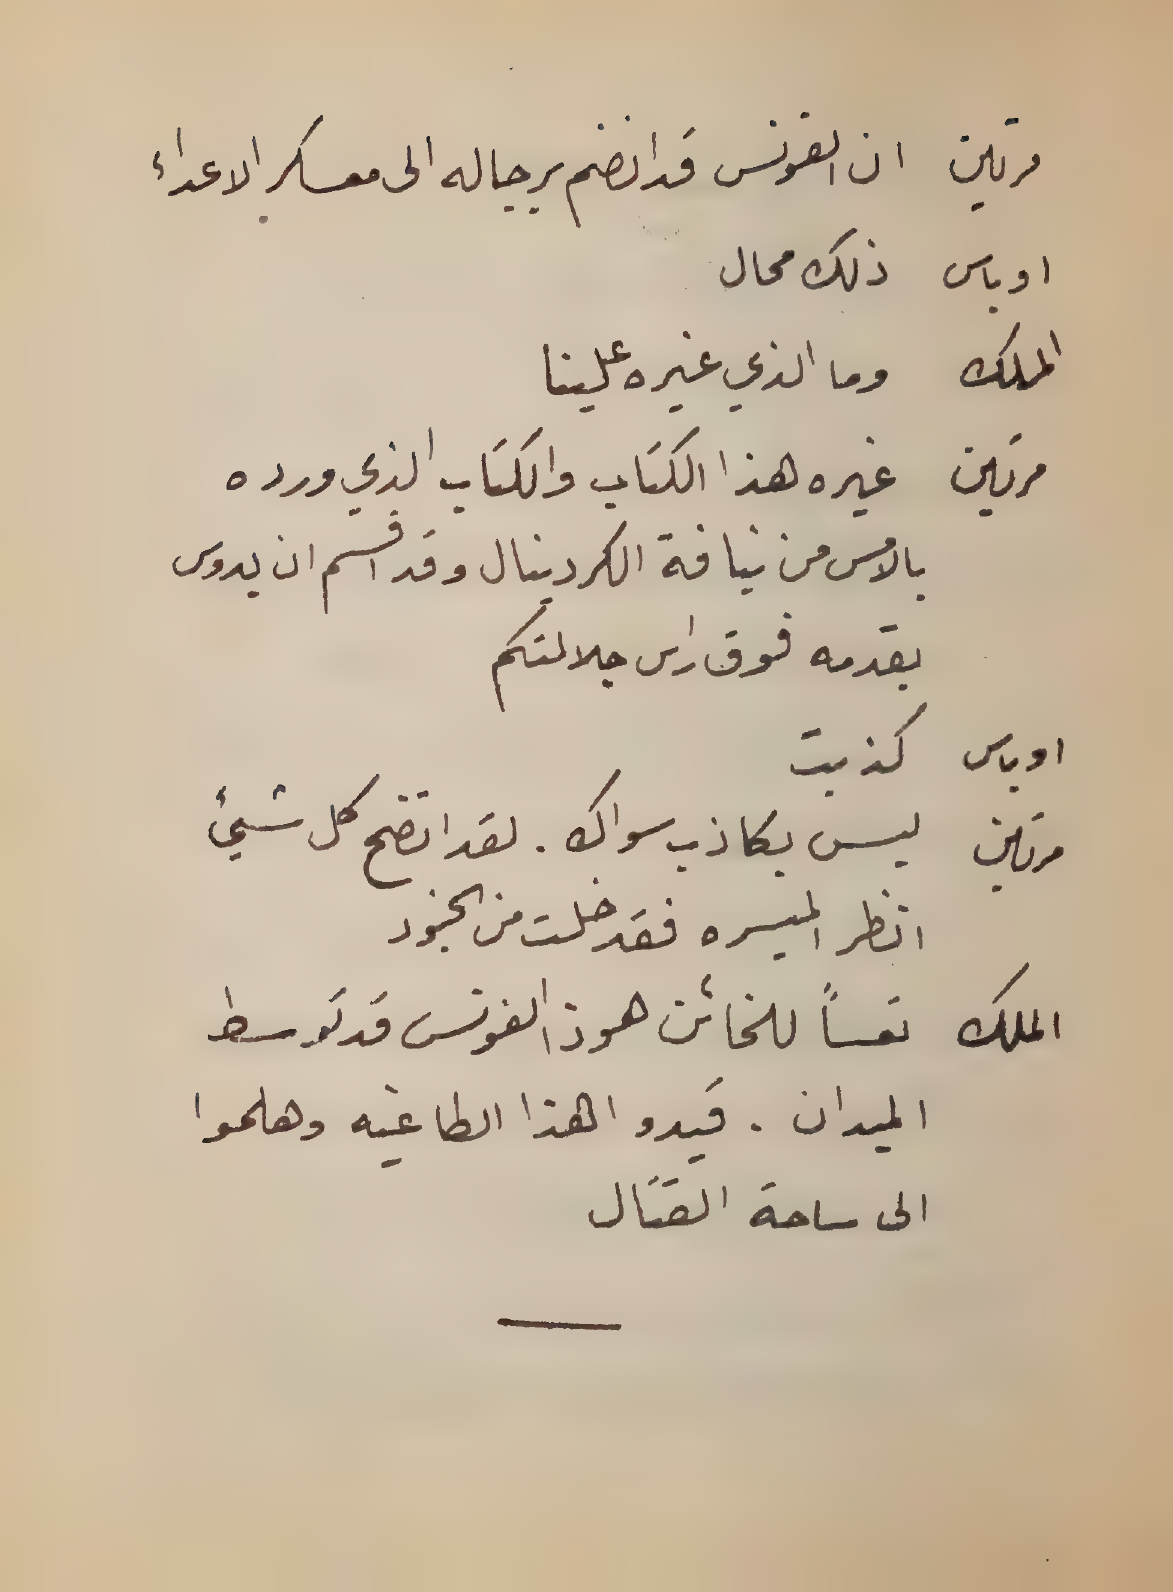 مرتين ان الفونس قد انضم برجاله الى معسكر الاعداء
اوباس ذلك محال
الملك وما الذي غيره علينا
مرتين غيره هذا الكتاب والكتاب الذي ورده
بالامس من نيافة الكردينال وقد اقسم ان يدوس
بقدمه فوق راس جلالتكم
اوباس كذبت
مرتين ليس بكاذب سواك . لقد اتضح كل شيئ
انظر الميسره فقد خلت من الجنود
الملك تعساً للخائن هوذا الفونس قد توسط
الميدان . قيدوا هذا الطاغيه وهلموا
الى ساحة القتال